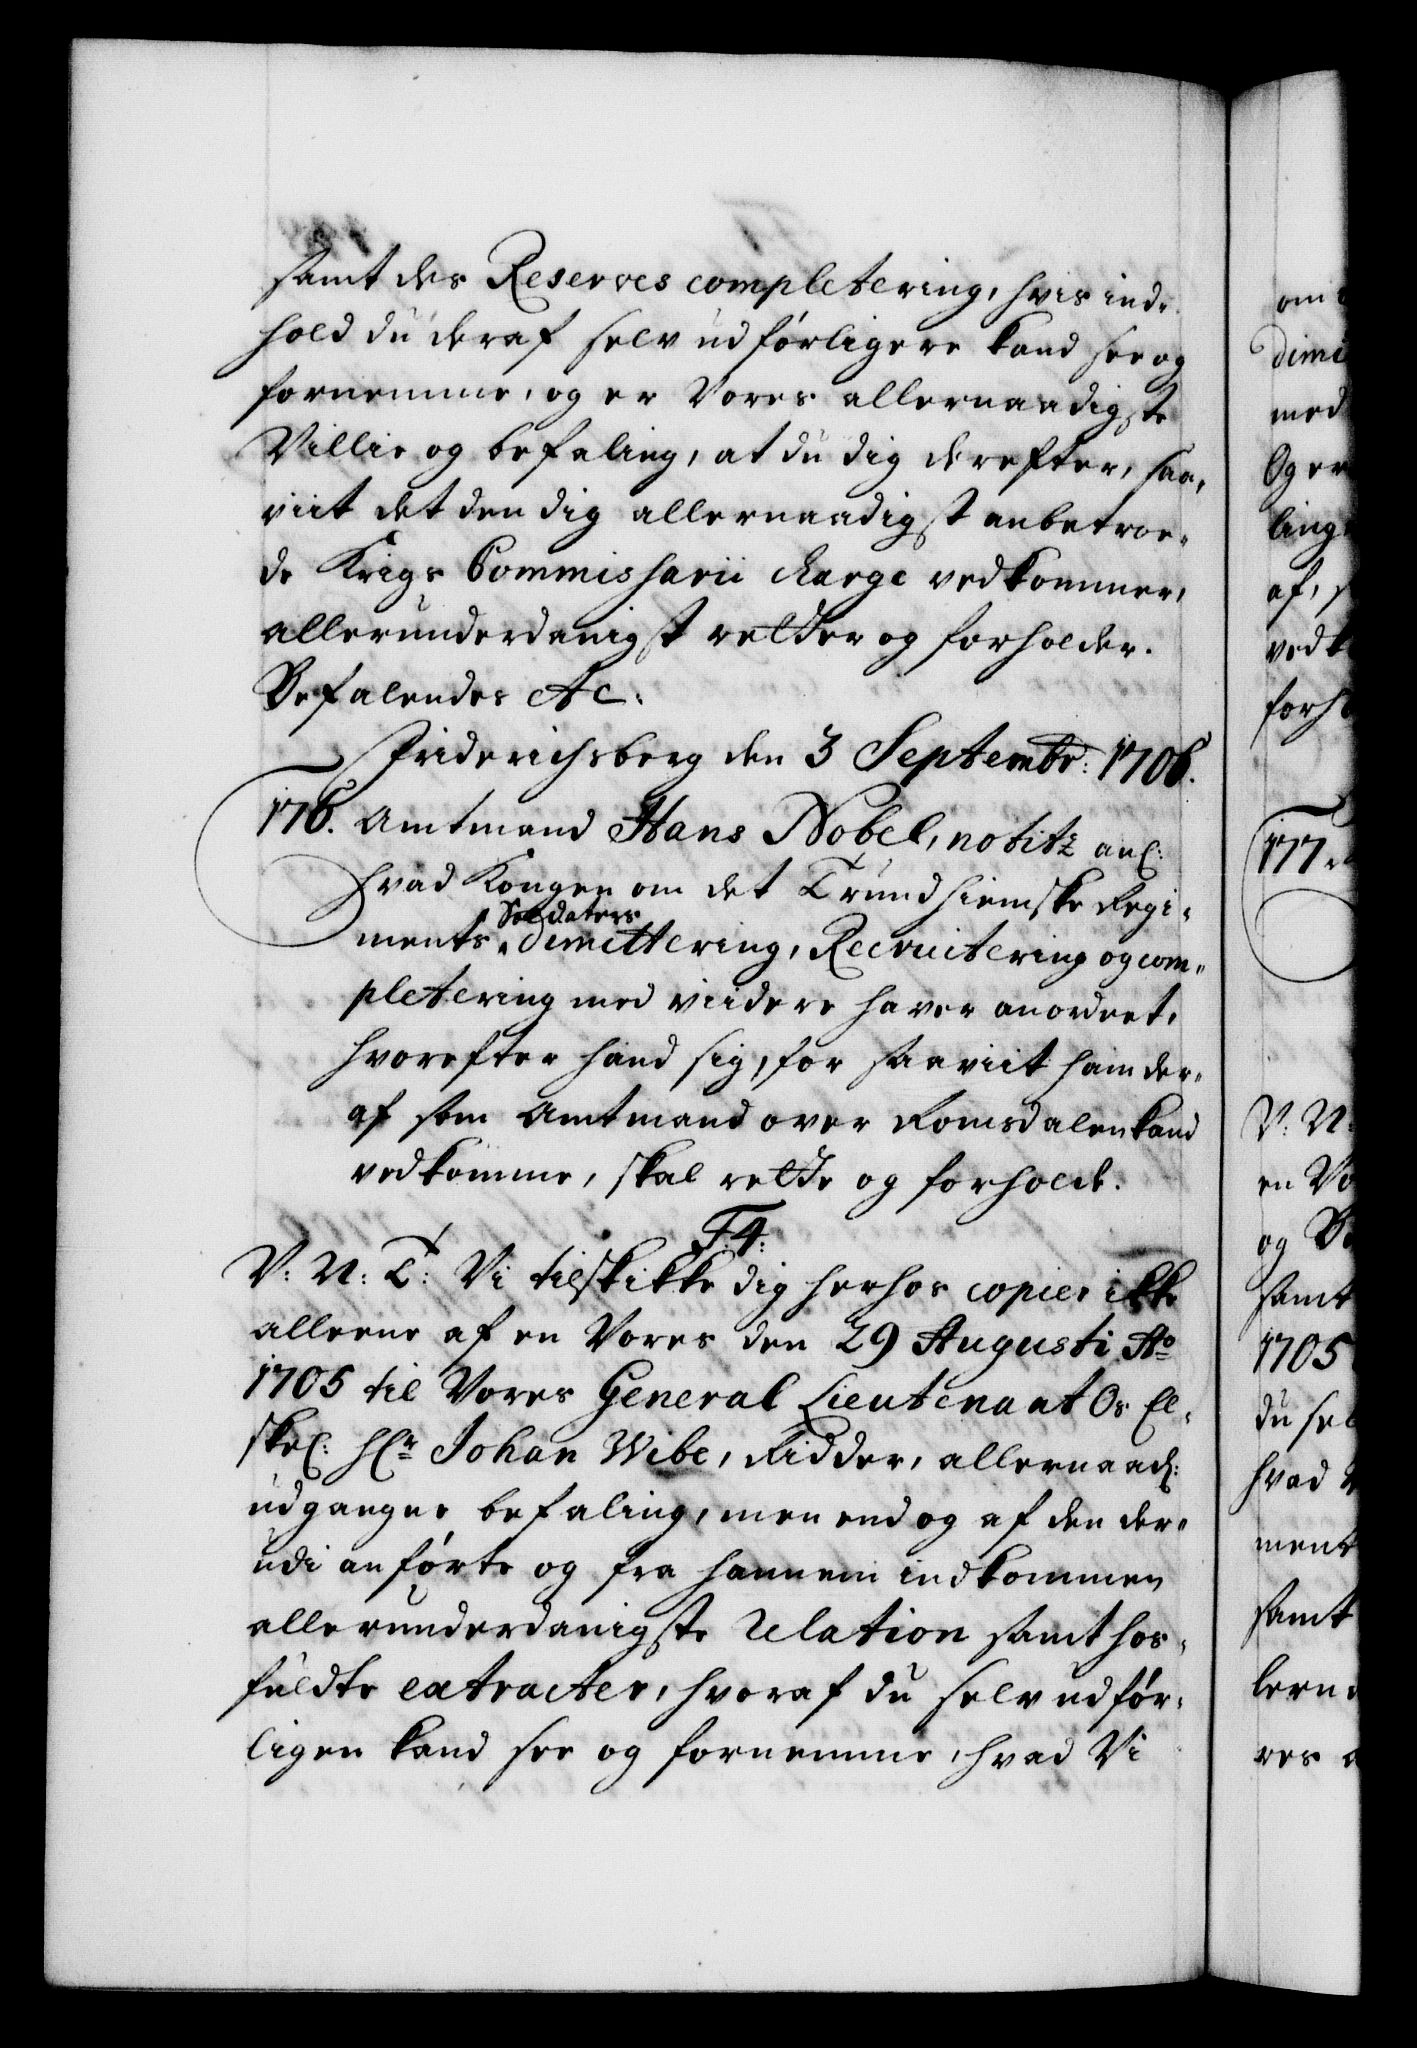 samt des Reserves completering, hvis ind-
hold du deraf selv udførligere kand see og
fornemme, og er Vores allernaadigste
Villie og befaling, at du dig derefter, saa-
viit det den dig allernaadigst anbetroe-
de Krigs Commissarii Charge vedkommer,
allerunderdanigst retter og forholder.
Befalendes Ac:
Friderichsberg den 3 Septembr: 1706.
176. Amtmand Hans Nobel, notitz anl:
hvad Kongen om det Trundhiemske Regi-
Soldaters
ments dimittering, Recruitering og com-
pletering med viidere haver anordnet,
hvorefter hand sig, for saaviit ham der-
af som Amtmand over Romsdalen kand
vedkomme, skal rette og forholde.
F. 4:
V: N: T: Vi tilskikke dig herhos copier ikke
alleene af en Vores den 29 Augusti Ao
1705 til Vores General Lieutenant Os El-
skel: Hr Johan Wibe, Ridder, allernaad:
udgangne befaling, men end og af den der-
udi anførte og fra hannem indkommen
allerunderdanigste Relation samt hos-
fuldte extracter, hvoraf du selv udfør-
ligen kand see og fornemme, hvad Vi
om
dimi
med
Og er
ling
af, s
vedk
forh
177.
V: N:
en Vo
og B
samt
1705
du sel
hvad
ment
samt
lern
res a